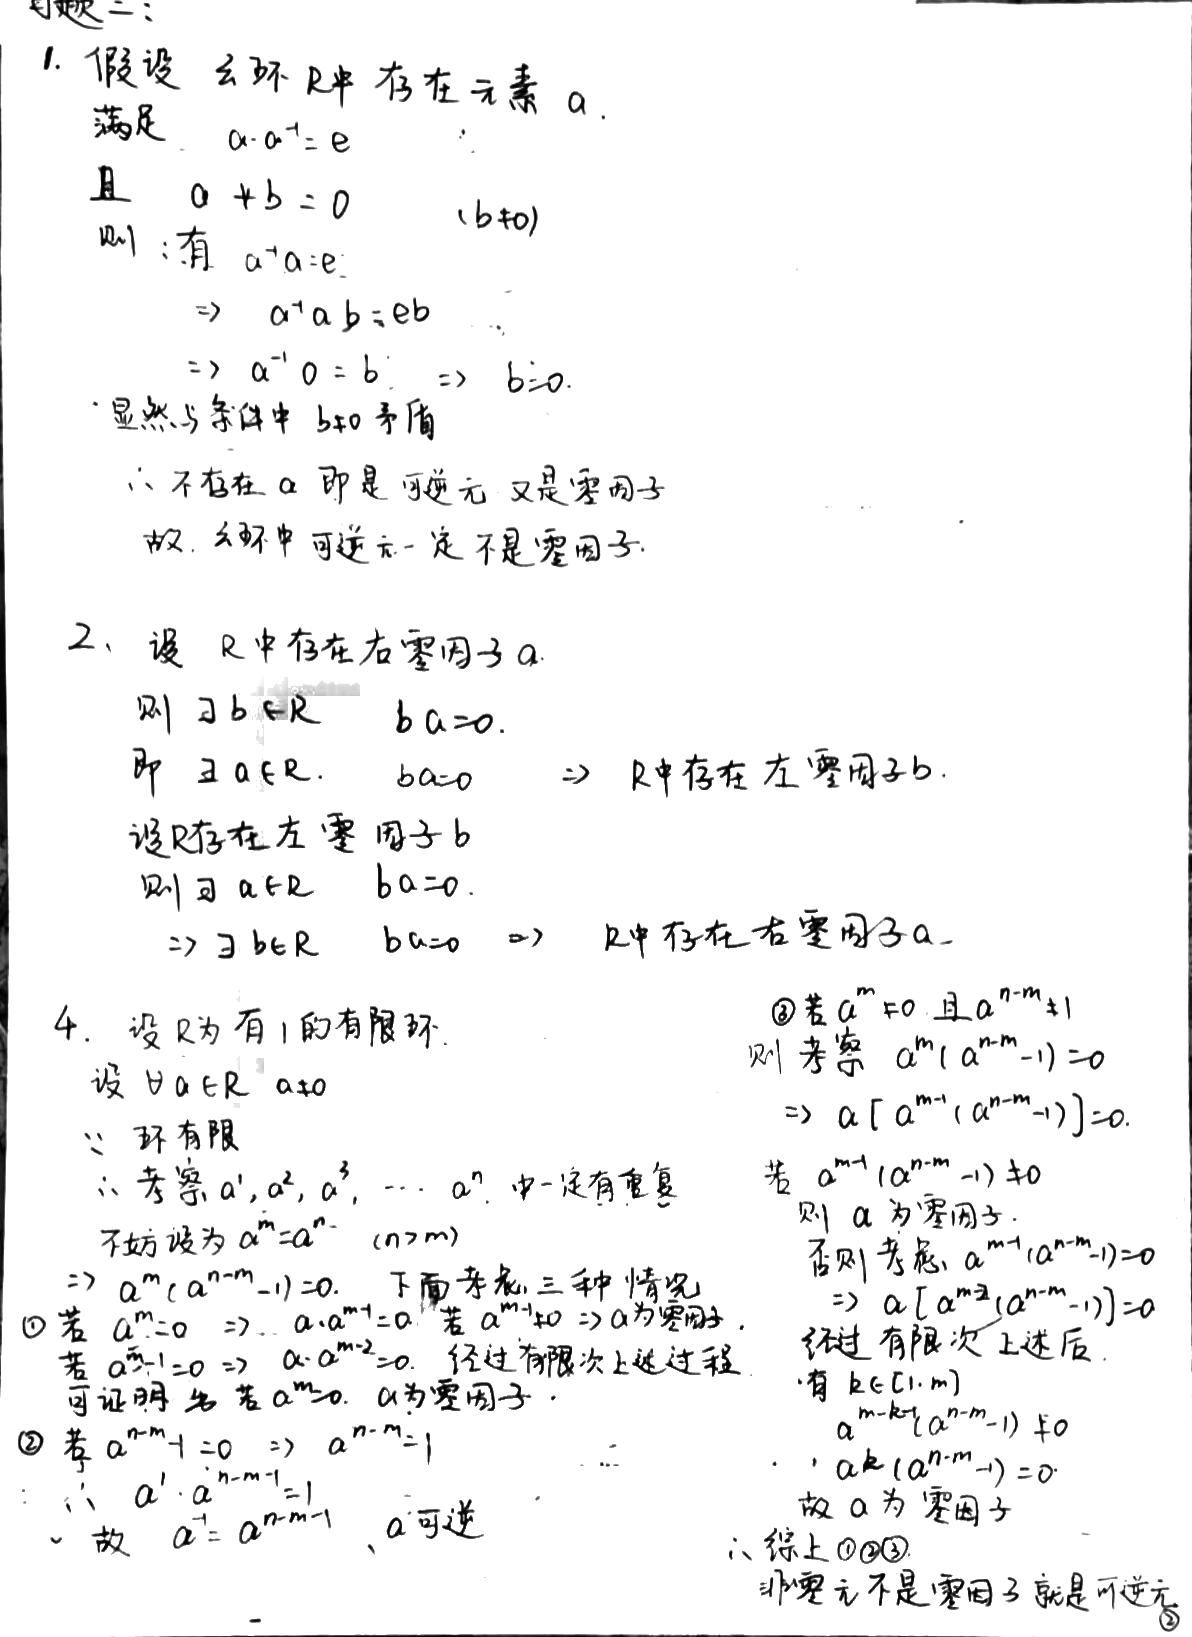 习题二:
1. 假设 幺环 R中 存在元素 a.
满足 a·a⁻¹=e
且 a*b=0 (b≠0)
则:有 a⁻¹a=e
=> a⁻¹ab=eb
=> a⁻¹0=b => b=0.
显然与条件中 b≠0 矛盾
∴ 不存在 a 即是可逆元 又是零因子
故. 幺环中可逆元一定不是零因子.
2、设 R中存在右零因子a.
则 ∃b∈R ba=0.
即 ∃a∈R. ba=0 => R中存在左零因子b.
设R存在左零因子b
则∃a∈R ba=0.
=>∃b∈R ba=0 => R中存在右零因子a.
4. 设R为有1的有限环.
设∀a∈R a≠0
∵ 环有限
∴ 考察 a¹,a²,a³,…aⁿ.中一定有重复
不妨设为 aᵐ=aⁿ (n>m)
=> aᵐ(aⁿ⁻ᵐ-1)=0. 下面考虑三种情况
① 若 aᵐ=0 => a·aᵐ⁻¹=0 若 aᵐ⁻¹≠0 => a为零因子.
若 aᵐ⁻¹=0 => a·aᵐ⁻²=0. 经过有限次上述过程
可证明 若 aᵐ=0. a为零因子.
② 若 aⁿ⁻ᵐ-1=0 => aⁿ⁻ᵐ=1
∴ a¹·aⁿ⁻ᵐ⁻¹=1
故 a⁻¹=aⁿ⁻ᵐ⁻¹、a可逆
③若 aᵐ≠0 且 aⁿ⁻ᵐ≠1
则 考察 aᵐ(aⁿ⁻ᵐ-1)=0
=> a[aᵐ⁻¹(aⁿ⁻ᵐ-1)]=0.
若 aᵐ⁻¹(aⁿ⁻ᵐ-1)≠0
则 a为零因子.
否则考虑 aᵐ⁻¹(aⁿ⁻ᵐ-1)=0
=> a[aᵐ⁻²(aⁿ⁻ᵐ-1)]=0
经过有限次上述后
有 k∈[1.m]
aᵐ⁻ᵏ⁻¹(aⁿ⁻ᵐ-1)≠0
ak(aⁿ⁻ᵐ-1)=0
故 a为零因子
∴ 综上①②③
非零元不是零因子就是可逆元
②